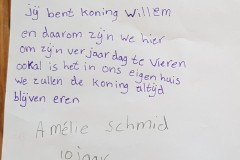 jij bent koning Willem
en daarom zijn we hier
om zijn verjaardag te vieren
ookal is het in ons eigen huis
we zullen de koning altijd
blijven eren
Amélie Schmid
10 jaar